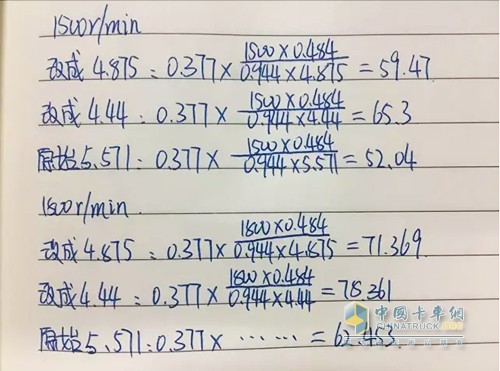 1500r/min
改成4.875：0.377×1500×0.484/0.944×4.875=59.47
改成4.44：0.377×1500×0.484/0.944×4.44=65.3
原始5.571：0.377×1500×0.484/0.944×5.571=52.04
1800r/min.
改成4.875：0.377×1800×0.484/0.944×4.875=71.369
改成4.44：0.377×1800×0.484/0.944×4.44=78.361
原始5.571：0.377×……=62.453
中国卡车网
CHINATRUCK.ORG